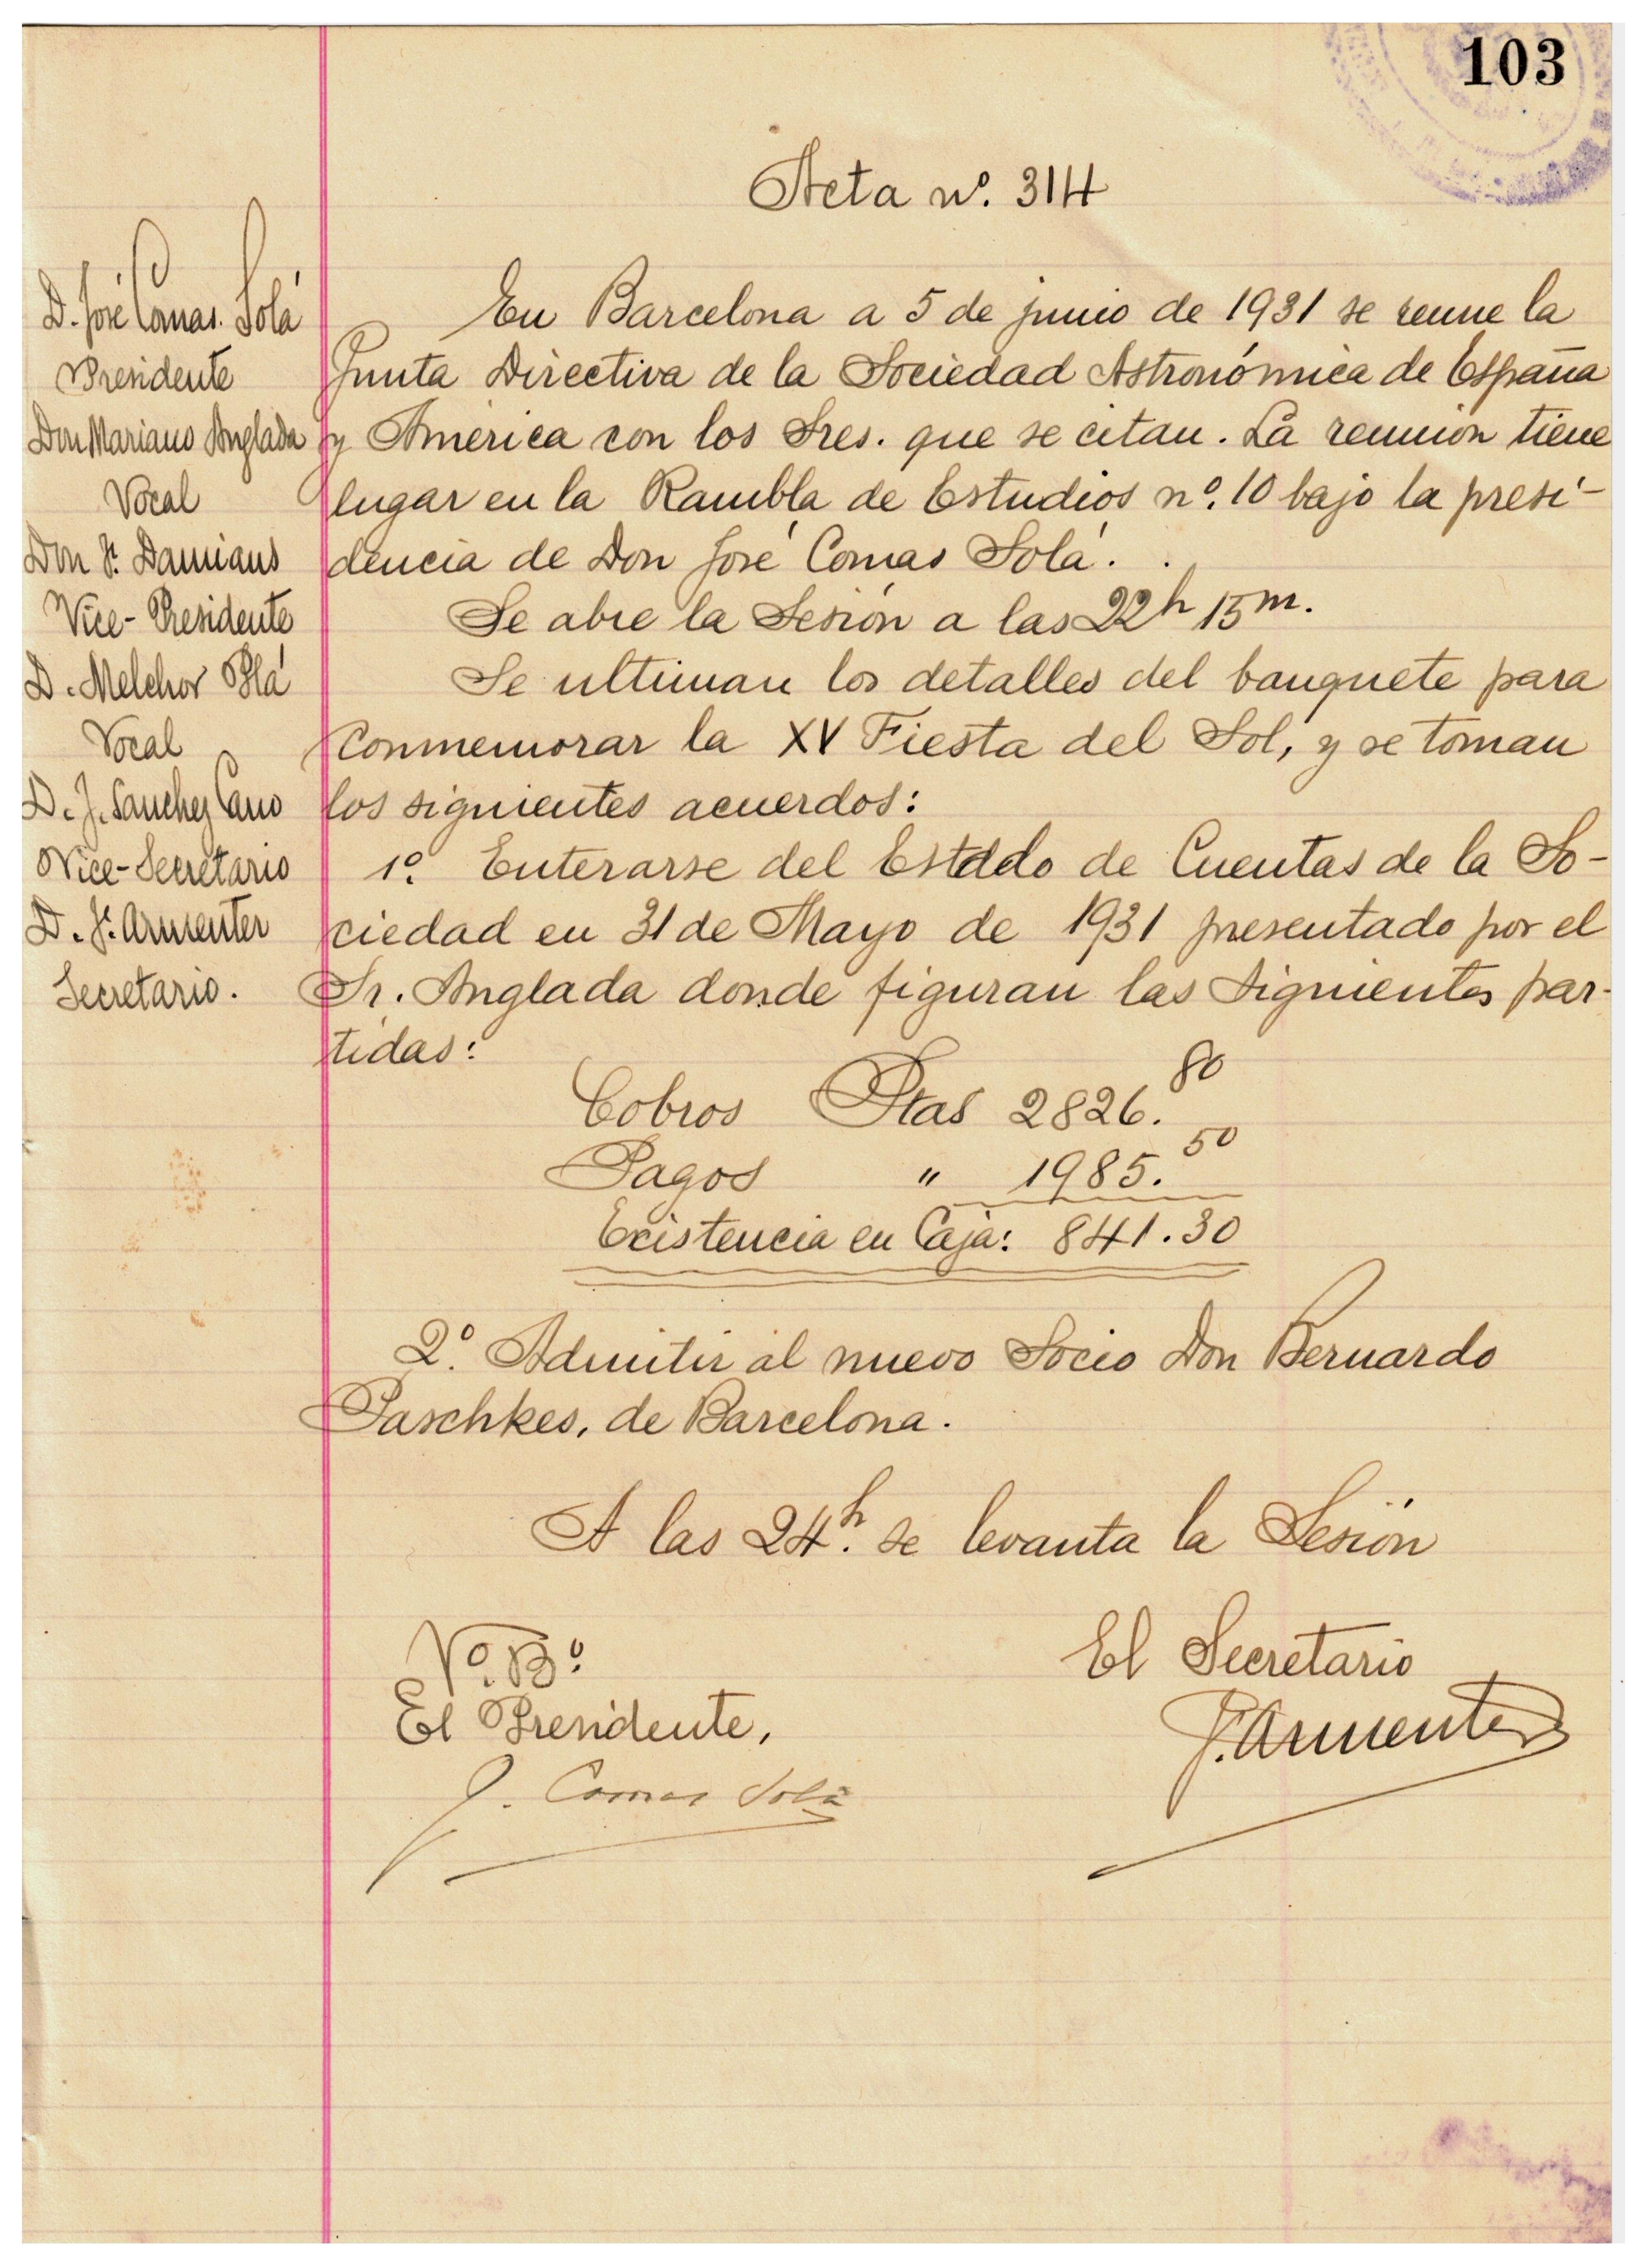 103
Acta nº. 314
D. José Comas. Solá
Presidente
Don Mariano Anglada
Vocal
Don F. Damians
Vice-Presidente
D. Melchor Plá
Vocal
D. J. Sanchez Cano
Vice-Secretario
D. J. Armenter
Secretario.
En Barcelona a 5 de junio de 1931 se reune la
Junta Directiva de la Sociedad Astronómica de España
y América con los Sres. que se citan. La reunión tiene
lugar en la Rambla de Estudios nº. 10 bajo la presi-
dencia de Don José Comas Solá.
Se abre la Sesión a las 22h 15m.
Se ultiman los detalles del banquete para
conmemorar la XV Fiesta del Sol, y se toman
los siguientes acuerdos:
1º. Enterarse del Estado de Cuentas de la So-
ciedad en 31 de Mayo de 1931 presentado por el
Sr. Anglada donde figuran las siguientes par-
tidas:
Cobros Ptas 2826.80
Pagos " 1985.50
Existencia en Caja: 841.30
2º. Admitir al nuevo Socio Don Bernardo
Paschkes, de Barcelona.
A las 24h. se levanta la Sesión
Vº. Bº.
El Presidente,
J. Comas Solá
El Secretario
J. Armenter